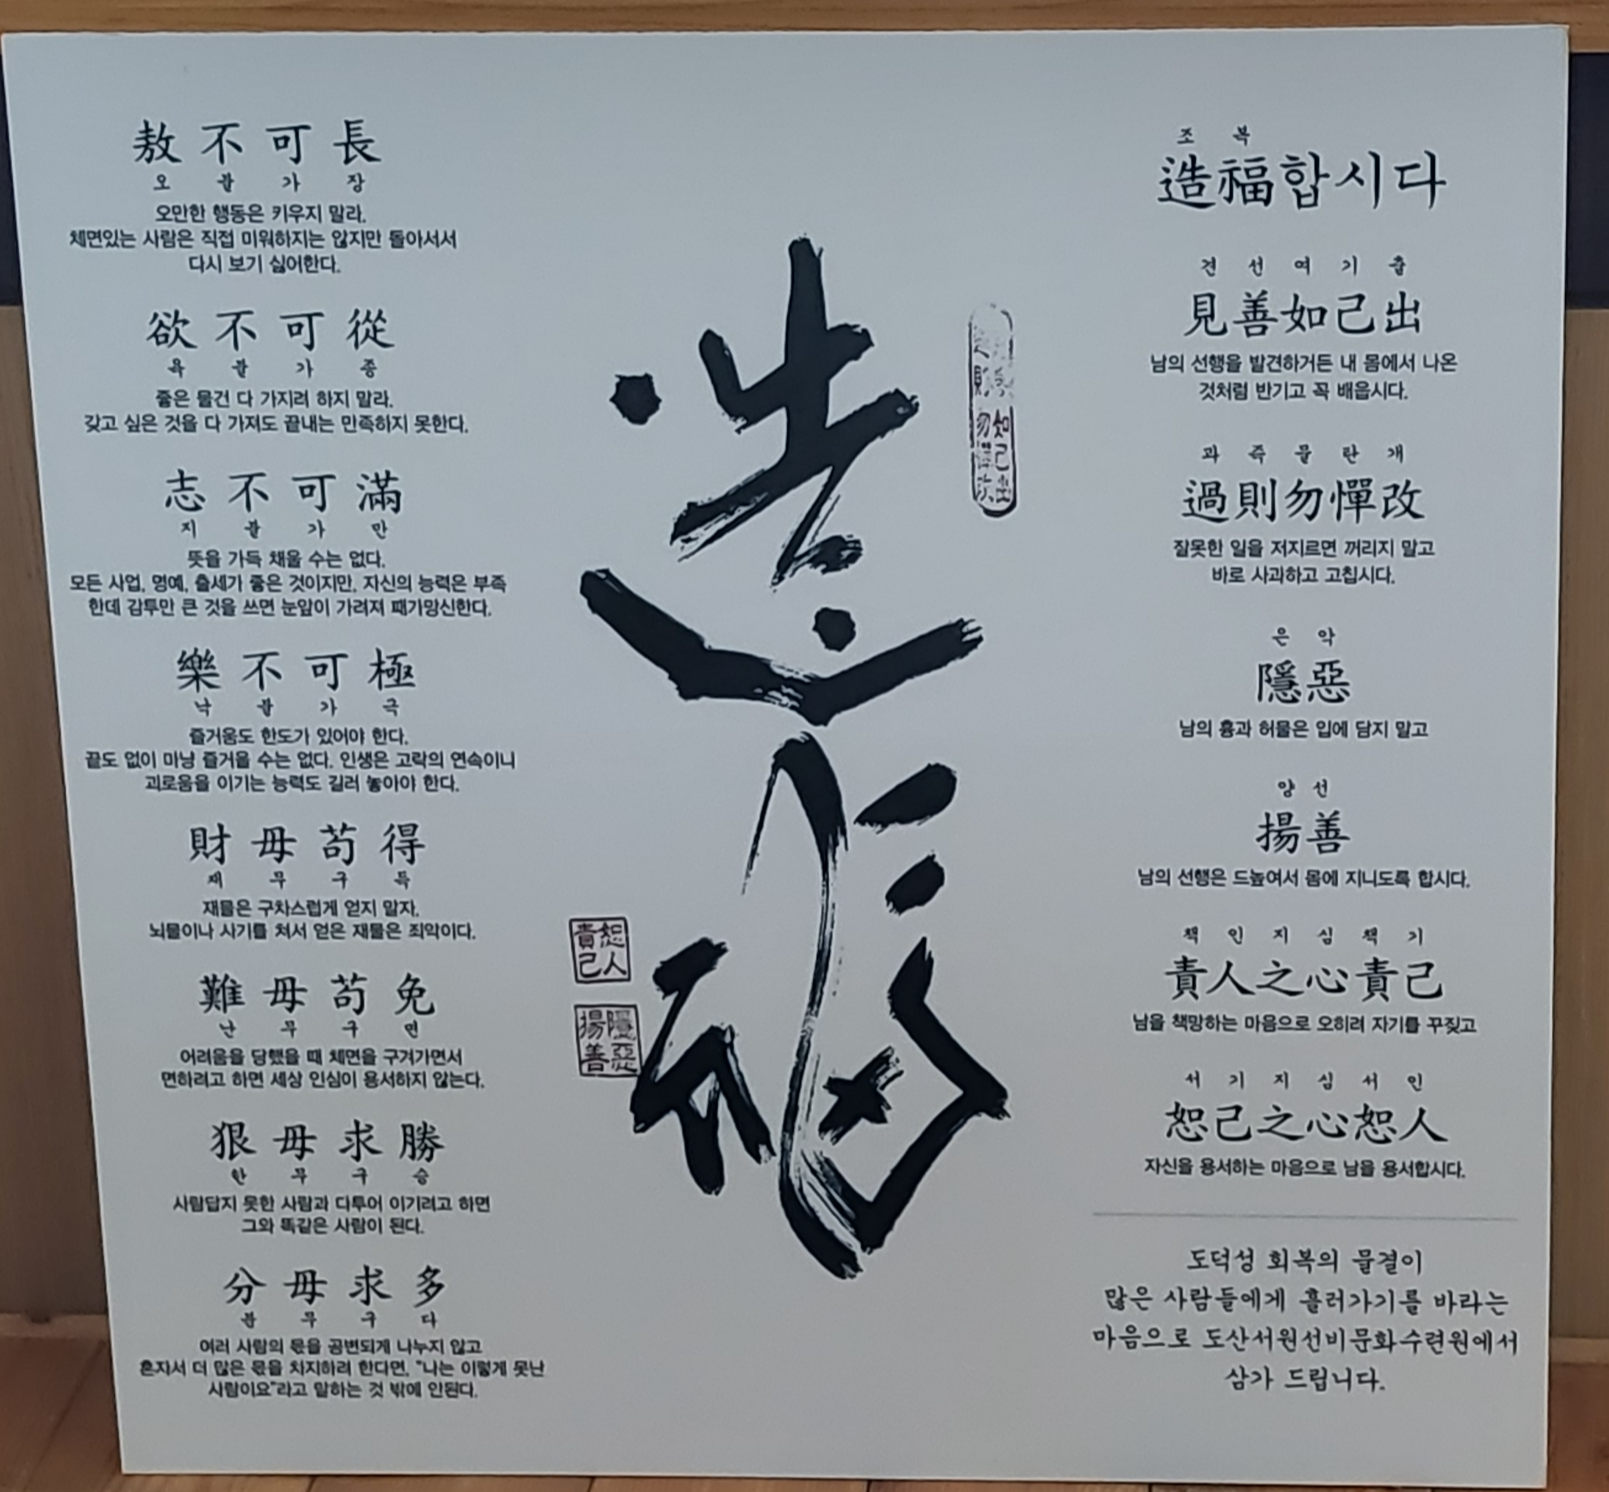 敖不可長
오불가장
오만한 행동은 키우지 말라.
체면있는 사람은 직접 미워하지는 않지만 돌아서서
다시 보기 싫어한다.
欲不可從
욕불가종
좋은 물건 다 가지려 하지 말라.
갖고 싶은 것을 다 가져도 끝내는 만족하지 못한다.
志不可滿
지불가만
뜻을 가득 채울 수는 없다.
모든 사업, 명예, 출세가 좋은 것이지만, 자신의 능력은 부족
한데 감투만 큰 것을 쓰면 눈앞이 가려져 패가망신한다.
樂不可極
낙불가극
즐거움도 한도가 있어야 한다.
끝도 없이 마냥 즐거울 수는 없다. 인생은 고락의 연속이니
괴로움을 이기는 능력도 길러 놓아야 한다.
財毋苟得
재무구득
재물은 구차스럽게 얻지 말자.
뇌물이나 사기를 쳐서 얻은 재물은 죄악이다.
難毋苟免
난무구면
어려움을 당했을 때 체면을 구겨가면서
면하려고 하면 세상 인심이 용서하지 않는다.
狠毋求勝
한무구승
사람답지 못한 사람과 다투어 이기려고 하면
그와 똑같은 사람이 된다.
分毋求多
분무구다
여러 사람의 몫을 공변되게 나누지 않고
혼자서 더 많은 몫을 차지하려 한다면, "나는 이렇게 못난
사람이요"라고 말하는 것 밖에 안된다.
造福
恕人
責己
隱惡
揚善
조복
造福합시다
견선여기출
見善如己出
남의 선행을 발견하거든 내 몸에서 나온
것처럼 반기고 꼭 배웁시다.
과즉물탄개
過則勿憚改
잘못한 일을 저지르면 꺼리지 말고
바로 사과하고 고칩시다.
은악
隱惡
남의 흉과 허물은 입에 담지 말고
양선
揚善
남의 선행은 드높여서 몸에 지니도록 합시다.
책인지심책기
責人之心責己
남을 책망하는 마음으로 오히려 자기를 꾸짖고
서기지심서인
恕己之心恕人
자신을 용서하는 마음으로 남을 용서합시다.
도덕성 회복의 물결이
많은 사람들에게 흘러가기를 바라는
마음으로 도산서원선비문화수련원에서
삼가 드립니다.